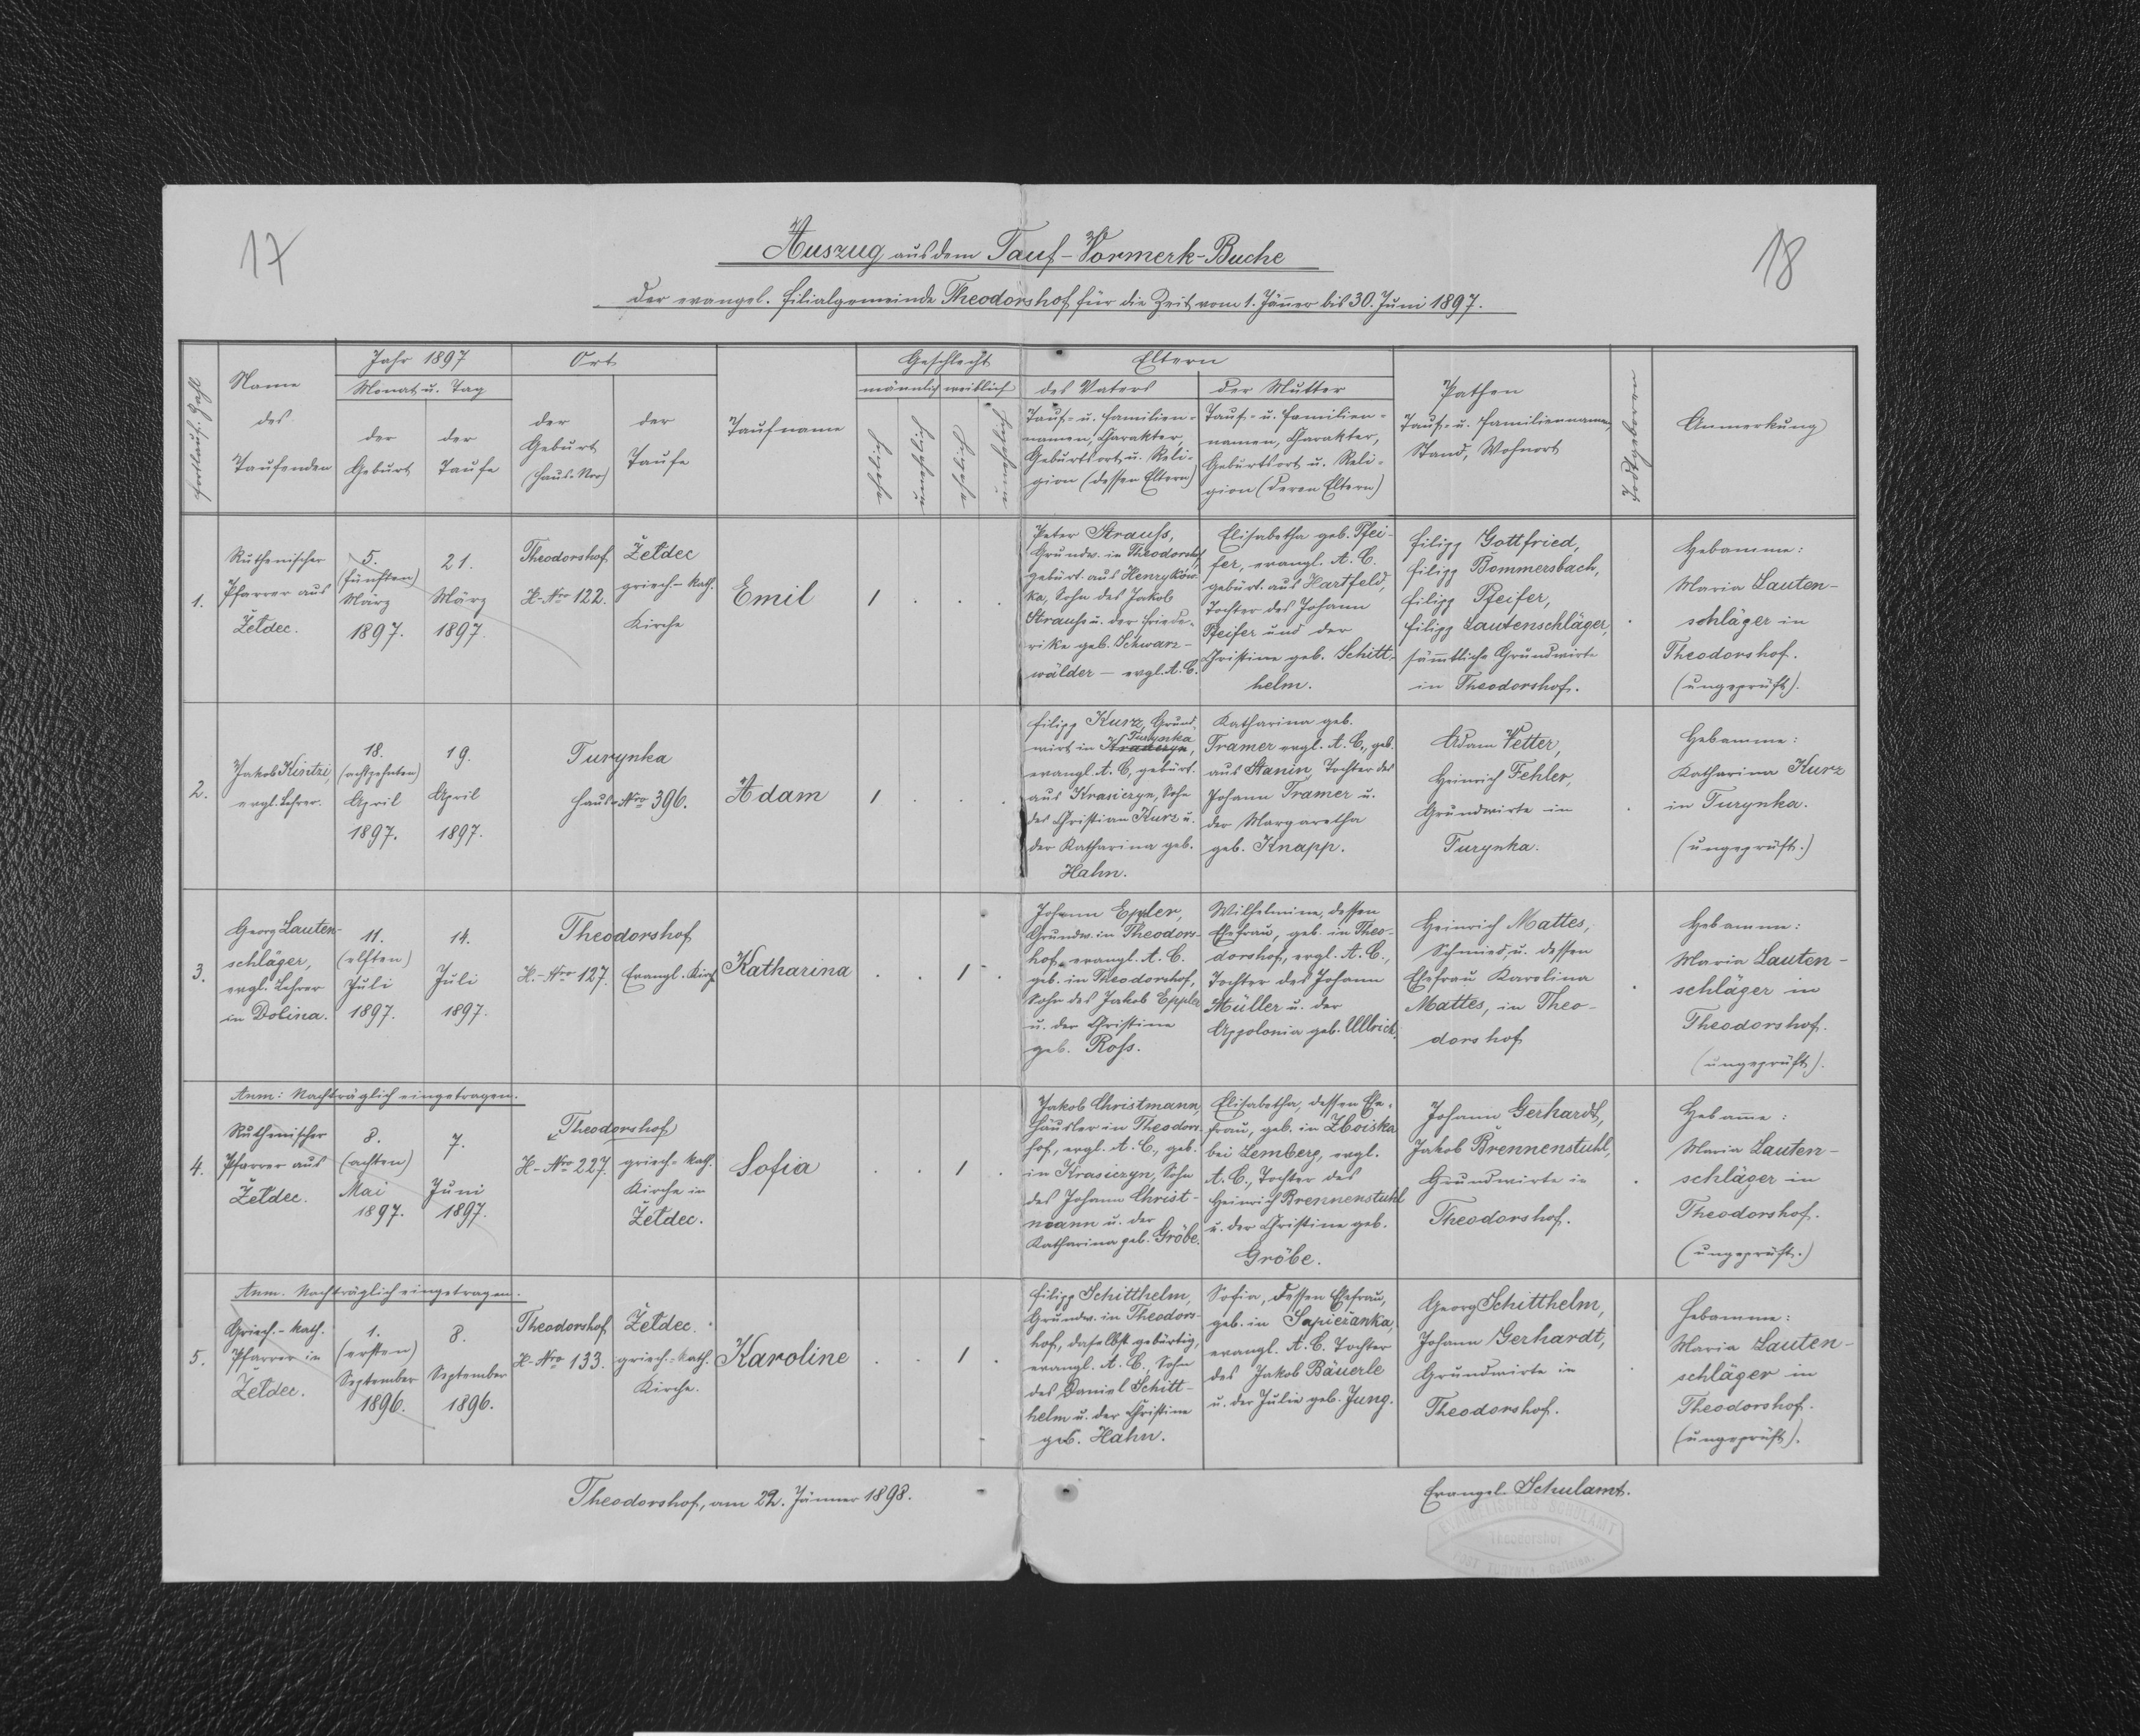 17
18
Auszug aus dem Tauf-Vormerk-Buche
der evangel. Filialgemeinde Theodorshof für die Zeit vom 1. Jänner bis 30. Juni 1897.
fortlauf. Zahl
Name
des
Taufenden
Jahr 1897
Monat u. Tag
der
Geburt
der
Taufe
Ort
der
Geburt
(Haus-Nro)
der
Taufe
Taufname
Geschlecht
männlich
weiblich
ehelich
unehelich
ehelich
unehelich
Eltern
des Vaters
Tauf- u. Familien-
namen, Charakter,
Geburtsort u. Reli-
gion (dessen Eltern)
der Mutter
Tauf- u. Familien-
namen, Charakter,
Geburtsort u. Reli-
gion (deren Eltern)
Pathen
Tauf- u. Familiennamen,
Stand, Wohnort
Todtgeboren
Anmerkung
1.
Ruthenischer
Pfarrer aus
Żełdec.
5.
(fünften)
März
1897.
21.
März
1897.
Theodorshof
H-Nro 122.
Żełdec
griech-kath.
Kirche
Emil
1 . . .
Peter Strauss,
Grundw. in Theodorshof,
gebürt. aus Henryków-
ka, Sohn des Jakob
Strauss u. der Friede-
rike geb. Schwarz-
wälder — evgl. A. C.
Elisabetha geb. Pfei-
fer, evangl. A. C.
gebürt. aus Hartfeld,
Tochter des Johann
Pfeifer und der
Christine geb. Schitt-
helm.
Filipp Gottfried,
Filipp Bommersbach,
Filipp Pfeifer,
Filipp Lautenschläger,
sämmtliche Grundwirte
in Theodorshof.
.
Hebamme:
Maria Lauten-
schläger in
Theodorshof.
(ungeprüft).
2.
Jakob Kintzi,
evgl. Lehrer.
18.
(achtzehnten)
April
1897.
19.
April
1897.
Turynka
Haus-Nro 396.
Adam
1 . . .
Filipp Kurz, Grund-
Turynka
wirt in Krasiczyn,
evangl. A. C., gebürt.
aus Krasiczyn, Sohn
des Christian Kurz u.
der Katharina geb.
Hahn.
Katharina geb.
Tramer evgl. A. C., geb.
aus Stanin, Tochter des
Johann Tramer u.
der Margaretha
geb. Knapp.
Adam Vetter,
Heinrich Fehler,
Grundwirte in
Turynka.
.
Hebamme:
Katharina Kurz
in Turynka.
(ungeprüft.)
3.
Georg Lauten-
schläger,
evgl. Lehrer
in Dolina.
11.
(elften)
Juli
1897.
14.
Juli
1897.
Theodorshof
H-Nro 127.
Evangl. Kirche
Katharina
. . 1 .
Johann Eppler,
Grundw. in Theodors-
hof, evangl. A. C.
geb. in Theodorshof,
Sohn des Jakob Eppler
u. der Christine
geb. Ross.
Wilhelmine, dessen
Ehefrau, geb. in Theo-
dorshof, evgl. A. C.,
Tochter des Johann
Müller u. der
Appolonia geb. Ullrich.
Heinrich Mattes,
Schmied, u. dessen
Ehefrau Karolina
Mattes, in Theo-
dorshof
.
Hebamme:
Maria Lauten-
schläger in
Theodorshof.
(ungeprüft).
Anm: Nachträglich eingetragen.
4.
Ruthenischer
Pfarrer aus
Żełdec.
8.
(achten)
Mai
1897.
7.
Juni
1897.
Theodorshof
H-Nro 227.
griech-kath.
Kirche in
Żełdec.
Sofia
. . 1 .
Jakob Christmann,
Häusler in Theodors-
hof, evgl. A. C., geb.
in Krasiczyn, Sohn
des Johann Christ-
mann u. der
Katharina geb. Gröbe.
Elisabetha, dessen Ehe-
frau, geb. in Zboiska
bei Lemberg, evgl.
A. C., Tochter des
Heinrich Brennenstuhl
u. der Christine geb.
Gröbe.
Johann Gerhardt,
Jakob Brennenstuhl,
Grundwirte in
Theodorshof.
.
Hebamme:
Maria Lauten-
schläger in
Theodorshof.
(ungeprüft.)
Anm. Nachträglich eingetragen.
5.
Griech.-kath.
Pfarrer in
Żełdec.
1.
(ersten)
September
1896.
8.
September
1896.
Theodorshof
H-Nro 133.
Żełdec.
griech.-kath.
Kirche.
Karoline
. . 1 .
Filipp Schitthelm,
Grundw. in Theodors-
hof, daselbst gebürtig,
evangl. A. C., Sohn
des Daniel Schitt-
helm u. der Christine
geb. Hahn.
Sofia, dessen Ehefrau,
geb. in Sapieżanka,
evangl. A. C. Tochter
des Jakob Bäuerle
u. der Julie geb. Jung.
Georg Schitthelm,
Johann Gerhardt,
Grundwirte in
Theodorshof.
.
Hebamme:
Maria Lauten-
schläger in
Theodorshof.
(ungeprüft).
Theodorshof, am 22. Jänner 1898.
Evangel. Schulamt.
EVANGELISCHES SCHULAMT
Theodorshof
POST TURYNKA Galizien.